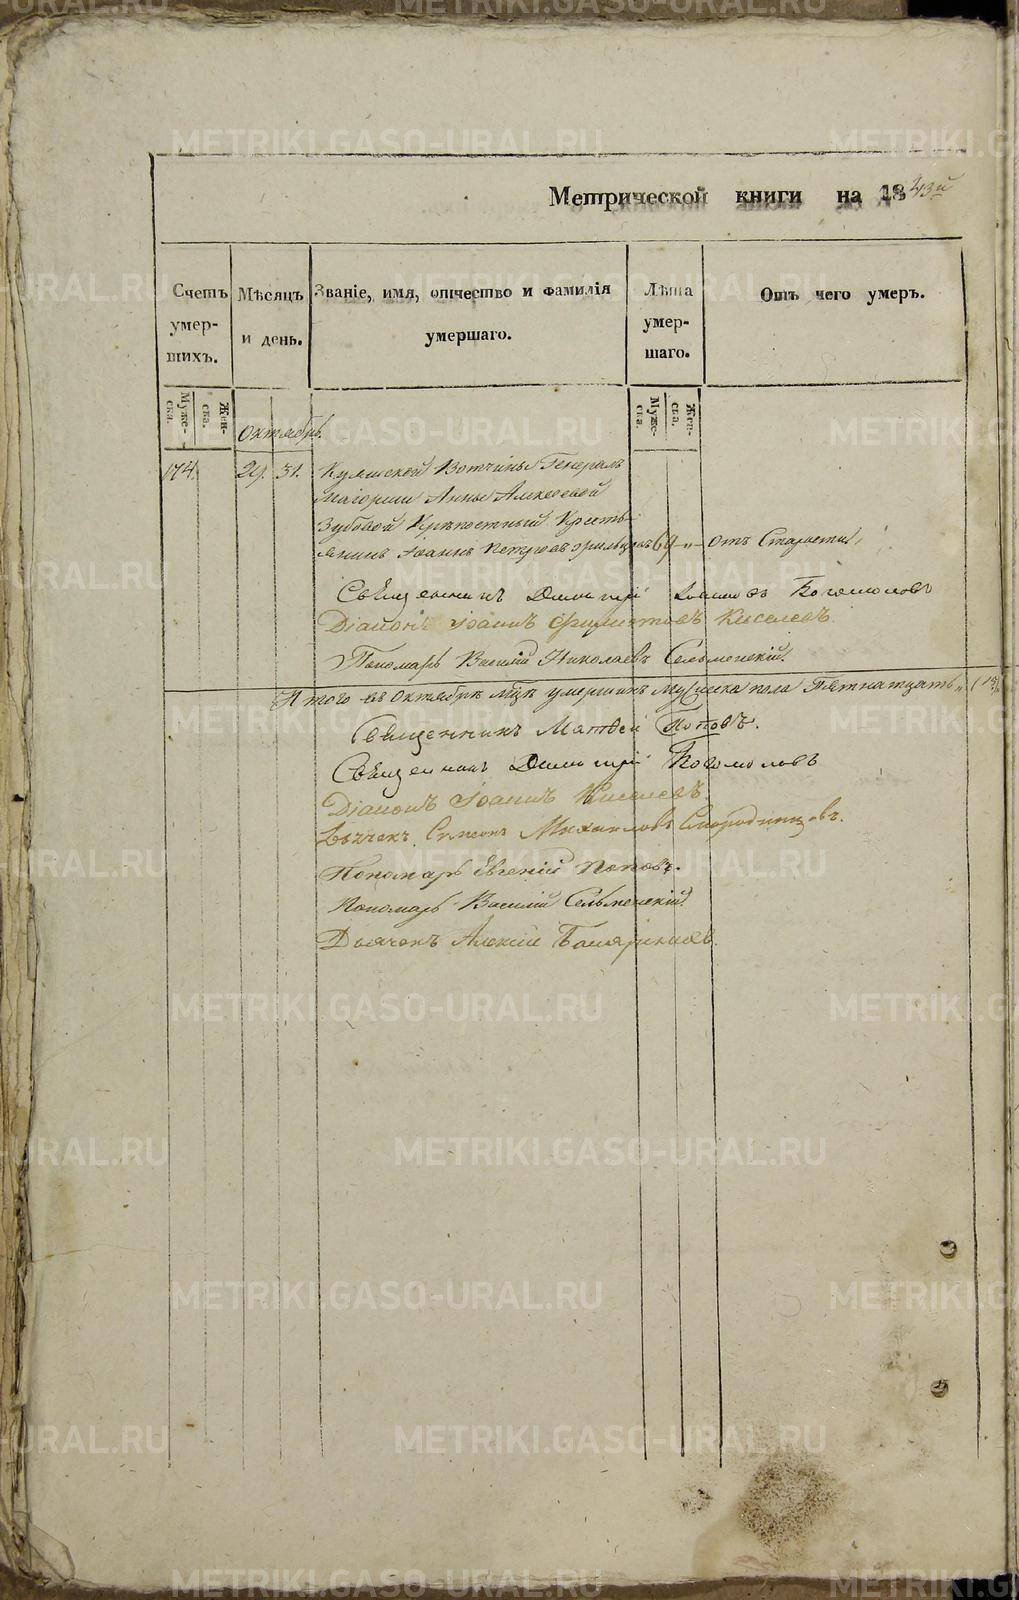 Метрической книги на 1843й
Счетъ умер-шихъ.
Мѣсяцъ и день.
Званіе, имя, отчество и фамилія умершаго.
Лѣта умер-шаго.
Отъ чего умеръ.
Муже-ска.
Жен-ска.
Муже-ска.
Жен-ска.
Октябрь.
174. 29. 31. Вотчины Генералъ
Маіорши Анны Алексеевой
Зубовой Крѣпостный Кресть-
янинъ Іоаннъ Петровъ 69 - „ - Отъ Старости
Священникъ Димитрій Богомоловъ
Діаконъ Іоаннъ Киселевъ.
Пономарь Василій Николаевъ Сельменскій.
Итого въ Октябрѣ мцѣ умершихъ мужеска пола Пятнатцать „ (15)
Священникъ Матвей Поповъ.
Священникъ Димитрій Богомоловъ
Діаконъ Іоаннъ Киселевъ.
Дьячекъ Симеонъ Михайловъ Смородинцовъ.
Пономарь Евгеній Поповъ.
Пономарь Василій Сельменскій.
Дьячокъ Алексій
METRIKI.GASO-URAL.RU